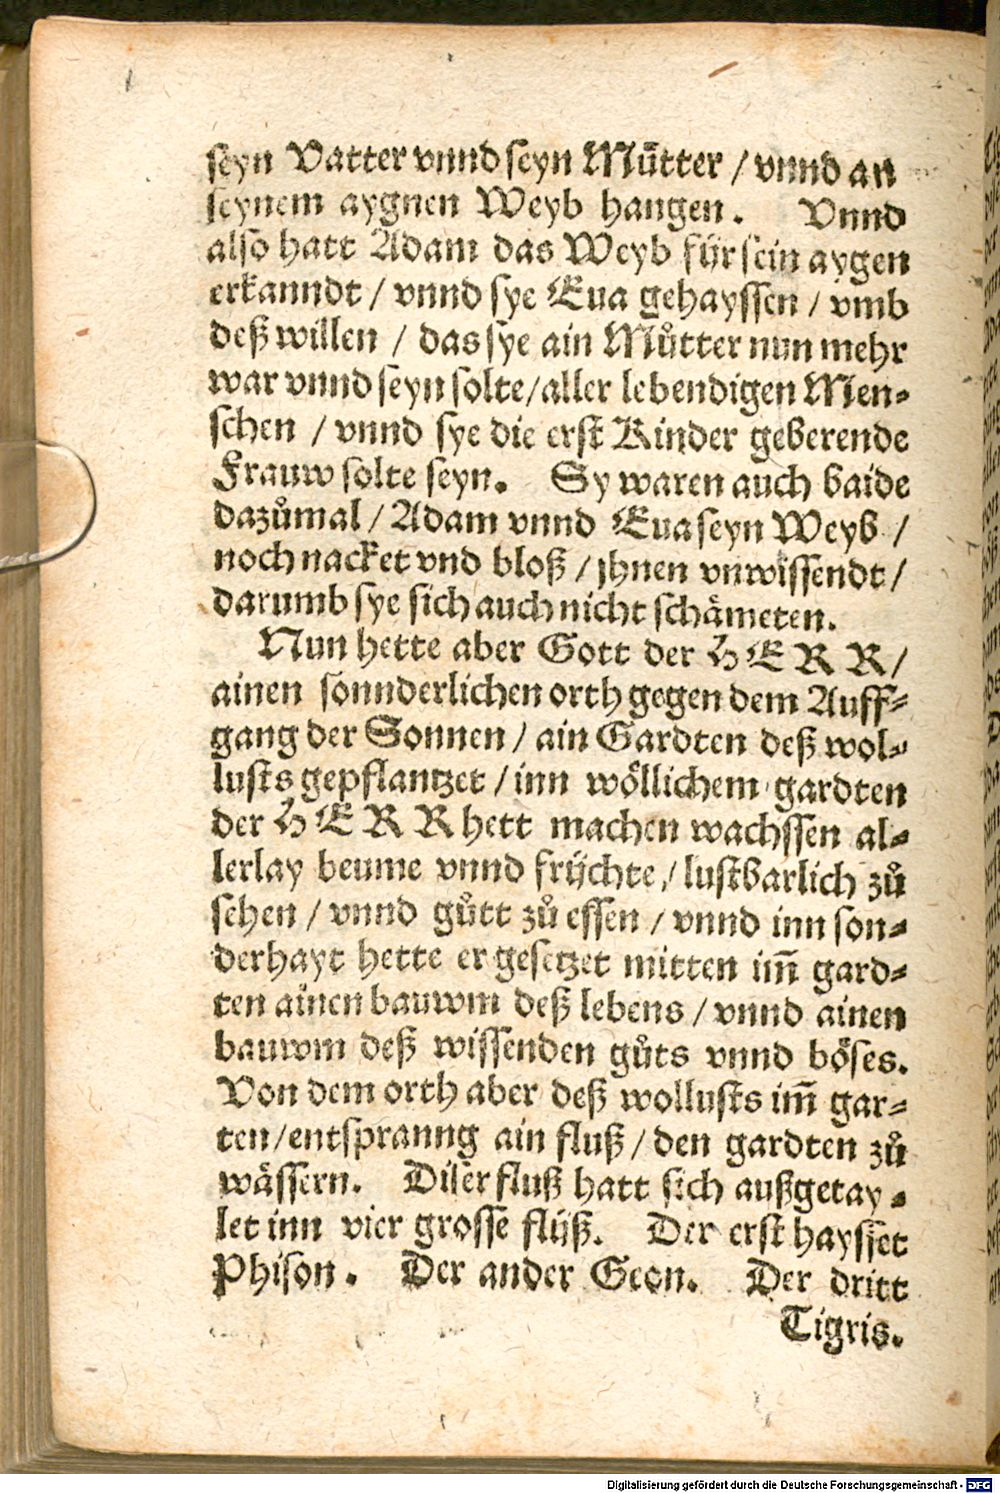 seyn Vatter vnnd seyn Můtter / vnnd an
seynem aygnen Weyb hangen. Vnnd
also hatt Adam das Weyb für sein aygen
erkanndt / vnnd sye Eua gehayssen / vmb
deß willen / das sye ain Můtter nun mehr
war vnnd seyn solte/aller lebendigen Men⸗
schen / vnnd sye die erst Kinder geberende
Frauw solte seyn. Sy waren auch baide
dazůmal / Adam vnnd Eua seyn Weyb /
noch nacket vnd bloß / jhnen vnwissendt /
darumb sye sich auch nicht schämeten.
Nun hette aber Gott der HERR /
ainen sonnderlichen orth gegen dem Auff⸗
gang der Sonnen / ain Gardten deß wol⸗
lusts gepflantzet / inn wöllichem gardten
der HERR hett machen wachssen al⸗
lerlay beume vnnd frÿchte / lustbarlich zů
sehen / vnnd gůtt zů essen / vnnd inn son⸗
derhayt hette er gesetzet mitten im̃ gard⸗
ten ainen bauwm deß lebens / vnnd ainen
bauwm deß wissenden gůts vnnd böses.
Von dem orth aber deß wollusts im̃ gar⸗
ten/entspranng ain fluß / den gardten zů
wässern. Diser fluß hatt sich außgetay⸗
let inn vier grosse flÿß. Der erst haysset
Phison. Der ander Geon. Der dritt
Tigris.
Digitalisierung gefördert durch die Deutsche Forschungsgemeinschaft - DFG